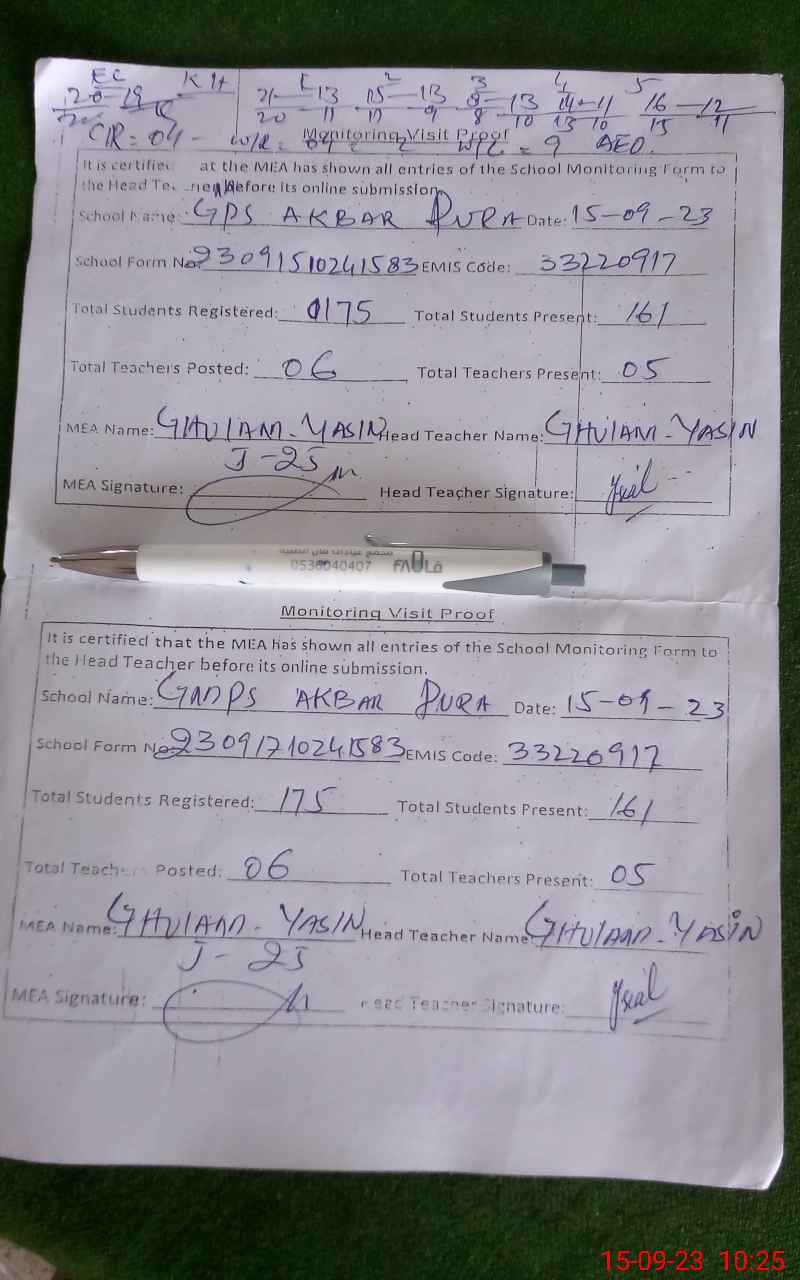 EC K 1 2 3 4 5
20 19 21 13 15 13 9 13 14 11 16 12
20 11 17 9 8 10 13 10 15 11
CIR = 04 - W/R = = 9 AEO.
Monitoring Visit Proof
It is certified at the MEA has shown all entries of the School Monitoring Form to
the Head before its online submission.
School Name: GPS AKBAR PURA Date: 15-09-23
School Form No. 23091510241583 EMIS Code: 33220917
Total Students Registered: 0175 Total Students Present: 161
Total Teachers Posted: 06 Total Teachers Present: 05
MEA Name: GHULAM-YASIN Head Teacher Name: GHULAM-YASIN
J-25
MEA Signature: Head Teacher Signature:
مجمع عيادات فال الطبية
0536040407 FAOLA فال
Monitoring Visit Proof
It is certified that the MEA has shown all entries of the School Monitoring Form to
the Head Teacher before its online submission.
School Name: GMPS AKBAR PURA Date: 15-09-23
School Form No 23091710241583 EMIS Code: 33220917
Total Students Registered: 175 Total Students Present: 161
Total Teachers Posted: 06 Total Teachers Present: 05
MEA Name: GHULAM-YASIN Head Teacher Name: GHULAM-YASIN
J-25
MEA Signature: Head Teacher Signature:
15-09-23 10:25